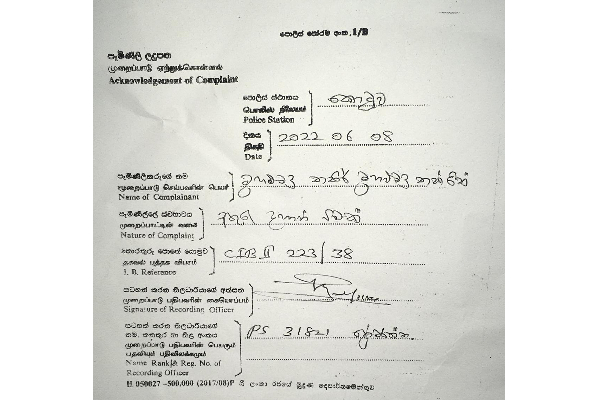 පොලිස් පෝරම අංක. 1/B
පැමිණිලි ලදුපත
முறைப்பாடு ஏற்றுக்கொள்ளல்
Acknowledgement of Complaint
පොලිස් ස්ථානය
பொலிஸ் நிலையம்
Police Station
කොටුව
දිනය
திகதி
Date
2022 06 08
පැමිණිලිකරුගේ නම
முறைப்பாடு செய்பவரின் பெயர்
Name of Complainant
පැමිණිල්ලේ ස්වභාවය
முறைப்பாட்டின் வகை
Nature of Complaint
තොරතුරු පොතේ යොමුව
தகவல் புத்தக விபரம்
I. B. Reference
CIB II 223/38
සටහන් කරන නිලධාරියාගේ අත්සන
முறைப்பாடு பதிபவரின் கையொப்பம்
Signature of Recording Officer
සටහන් කරන නිලධාරියාගේ
නම, තනතුර හා නිල අංකය
முறைப்பாடு பதிபவரின் பெயரும்
பதவியும் பதிவிலக்கமும்
Name Rank & Reg. No. of
Recording Officer
PS 31821
H 050027 -500,000 (2017/08)P ශ්‍රී ලංකා රජයේ මුද්‍රණ දෙපාර්තමේන්තුව